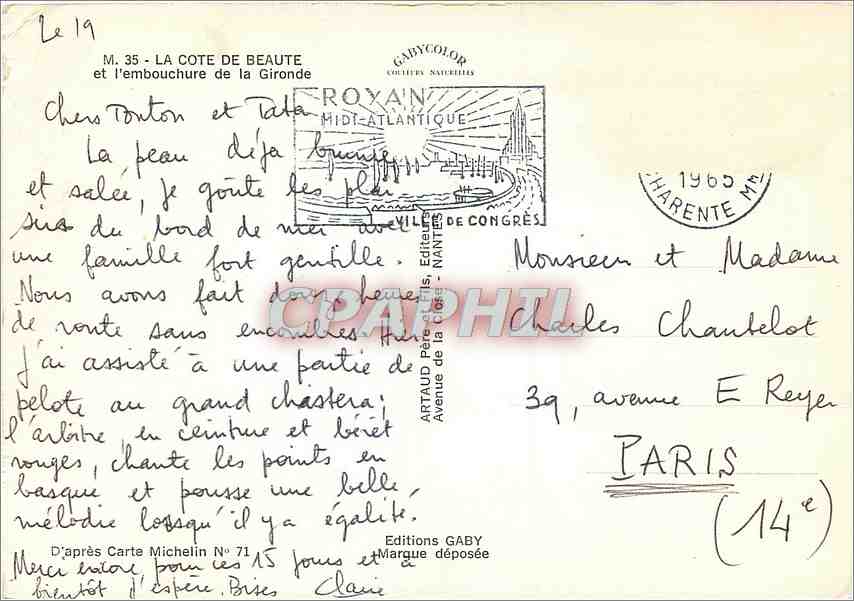 Le 19
M. 35 - LA COTE DE BEAUTE
et l'embouchure de la Gironde
GABYCOLOR
COULEURS NATURELLES
Chers Tonton et Tata
La peau déja brunie
et salée, je goûte les plai
sirs du bord de mer avec
une famille fort gentille.
Nous avons fait douze heures
de route sans encombres. Hier
j'ai assisté à une partie de
pelote au grand chistera;
l'arbitre, en ceinture et béret
rouges, chante les points en
basque et pousse une belle
mélodie lorsqu'il y a égalité.
Merci encore pour ces 15 jours et à
bientôt j'espère. Bises Claire
D'après Carte Michelin No 71
Editions GABY
Marque déposée
ARTAUD Père et Fils, Editeurs
Avenue de la Close - NANTES
ROYAN
MIDI-ATLANTIQUE
VILLE DE CONGRÈS
1965
CHARENTE Mme
Monsieur et Madame
Charles Chantelot
39, avenue E Reyer
PARIS
(14e)
CPAPHIL